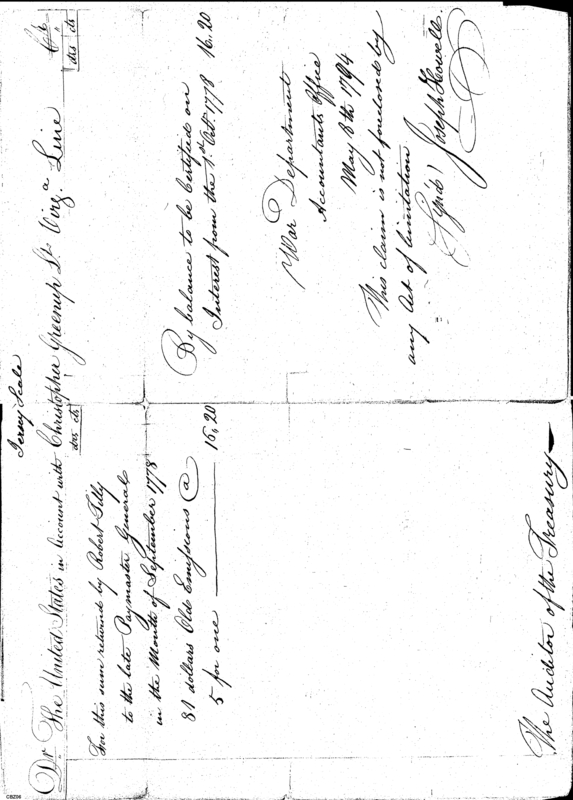 Jersey Scale
Dr The United States in Account with Christopher Greenup Lt. Virga. Line Cr
drs cts
drs cts
For this sum returned by Robert Tilly
to the late Paymaster General
in the Month of September 1778
81 dollars Old Emissions @
5 for one 16,20
By balance to be Certified on
Interest from the 1st Octr 1778 16,20
War Department
Accountants Office
May 8th 1794
This claim is not foreclosed by
any Act of limitation
(Sign'd) Joseph Howell
The Auditor of the Treasury
CBZ06